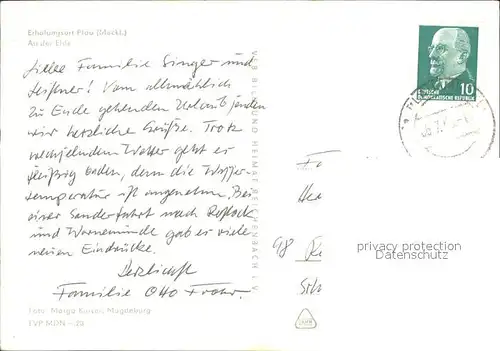 Erholungsort Plau (Meckl.)
An der Elde
Liebe Familie Singer und
! Vom allmählich
zu Ende gehenden Urlaub senden
wir herzliche Grüße. Trotz
wechselndem Wetter geht es
fleißig baden, denn die Wasser-
temperatur ist angenehm. Bei
einer Sonderfahrt nach Rostock
und Warnemünde gab es viele
neuen Eindrücke.
Herzlichst
Familie Otto
Foto: Marga Kaiser, Magdeburg
TVP MDN —,20
VEB BILD UND HEIMAT REICHENBACH I. V.
10
DEUTSCHE
DEMOKRATISCHE REPUBLIK
Fa
He
98
privacy protection
Datenschutz